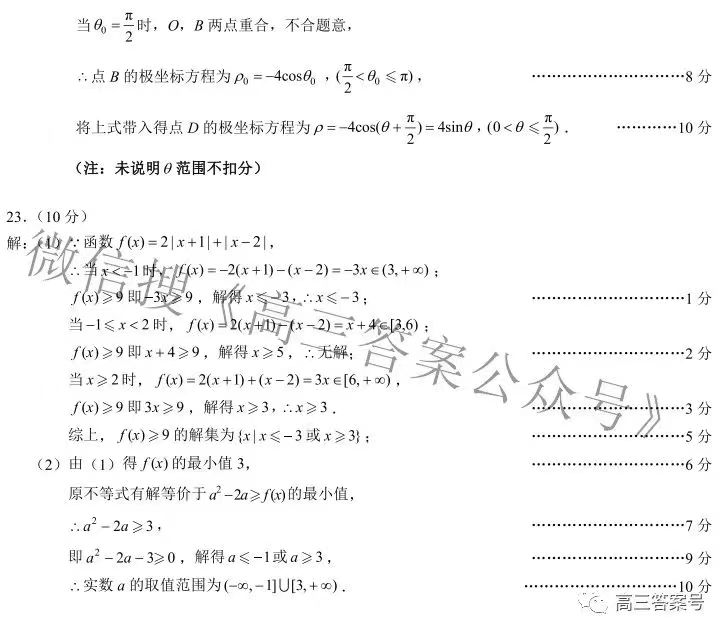 当θ₀=π/2时，O，B 两点重合，不合题意，
∴点 B 的极坐标方程为ρ₀=−4cosθ₀，(π/2<θ₀⩽π)， ································8 分
将上式带入得点 D 的极坐标方程为ρ=−4cos(θ+π/2)=4sinθ，(0<θ⩽π/2)． ············10 分
（注：未说明θ范围不扣分）
23．（10 分）
解：（1）∵函数 f(x)=2|x+1|+|x−2|，
∴当x<−1时，f(x)=−2(x+1)−(x−2)=−3x∈(3,+∞)；
f(x)⩾9 即−3x⩾9，解得x⩽−3，∴x⩽−3； ································1 分
当−1⩽x<2时，f(x)=2(x+1)−(x−2)=x+4∈[3,6)；
f(x)⩾9 即 x+4⩾9，解得 x⩾5，∴无解； ································2 分
当x⩾2时，f(x)=2(x+1)+(x−2)=3x∈[6,+∞)，
f(x)⩾9 即3x⩾9，解得x⩾3，∴x⩾3． ································3 分
综上，f(x)⩾9 的解集为{x|x⩽−3 或 x⩾3}； ································5 分
（2）由（1）得 f(x) 的最小值 3， ································6 分
原不等式有解等价于a²−2a⩾f(x)的最小值，
∴a²−2a⩾3， ································7 分
即a²−2a−3⩾0，解得a⩽−1或a⩾3， ································9 分
∴实数 a 的取值范围为(−∞,−1]∪[3,+∞)． ································10 分
微信搜《高三答案公众号》
高三答案号